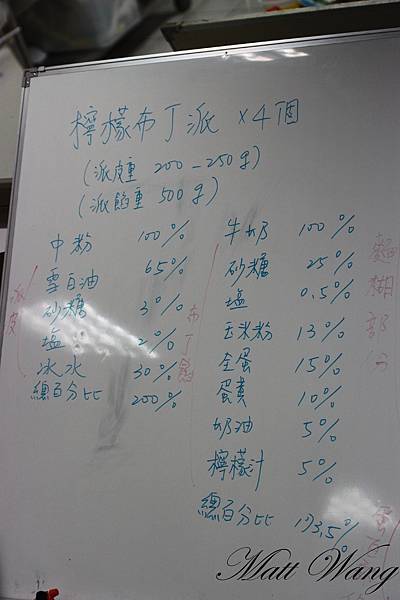 檸檬布丁派 ×4個
(派皮重 200-250g)
(派餡重 500g)
派皮
中粉 100%
雪白油 65%
砂糖 3%
塩 2%
冰水 30%
總百分比 200%
布丁餡
牛奶 100%
砂糖 25%
塩 0.5%
玉米粉 13%
全蛋 15%
蛋黃 10%
奶油 5%
檸檬汁 5%
總百分比 173.5%
麵糊部分
Matt Wang